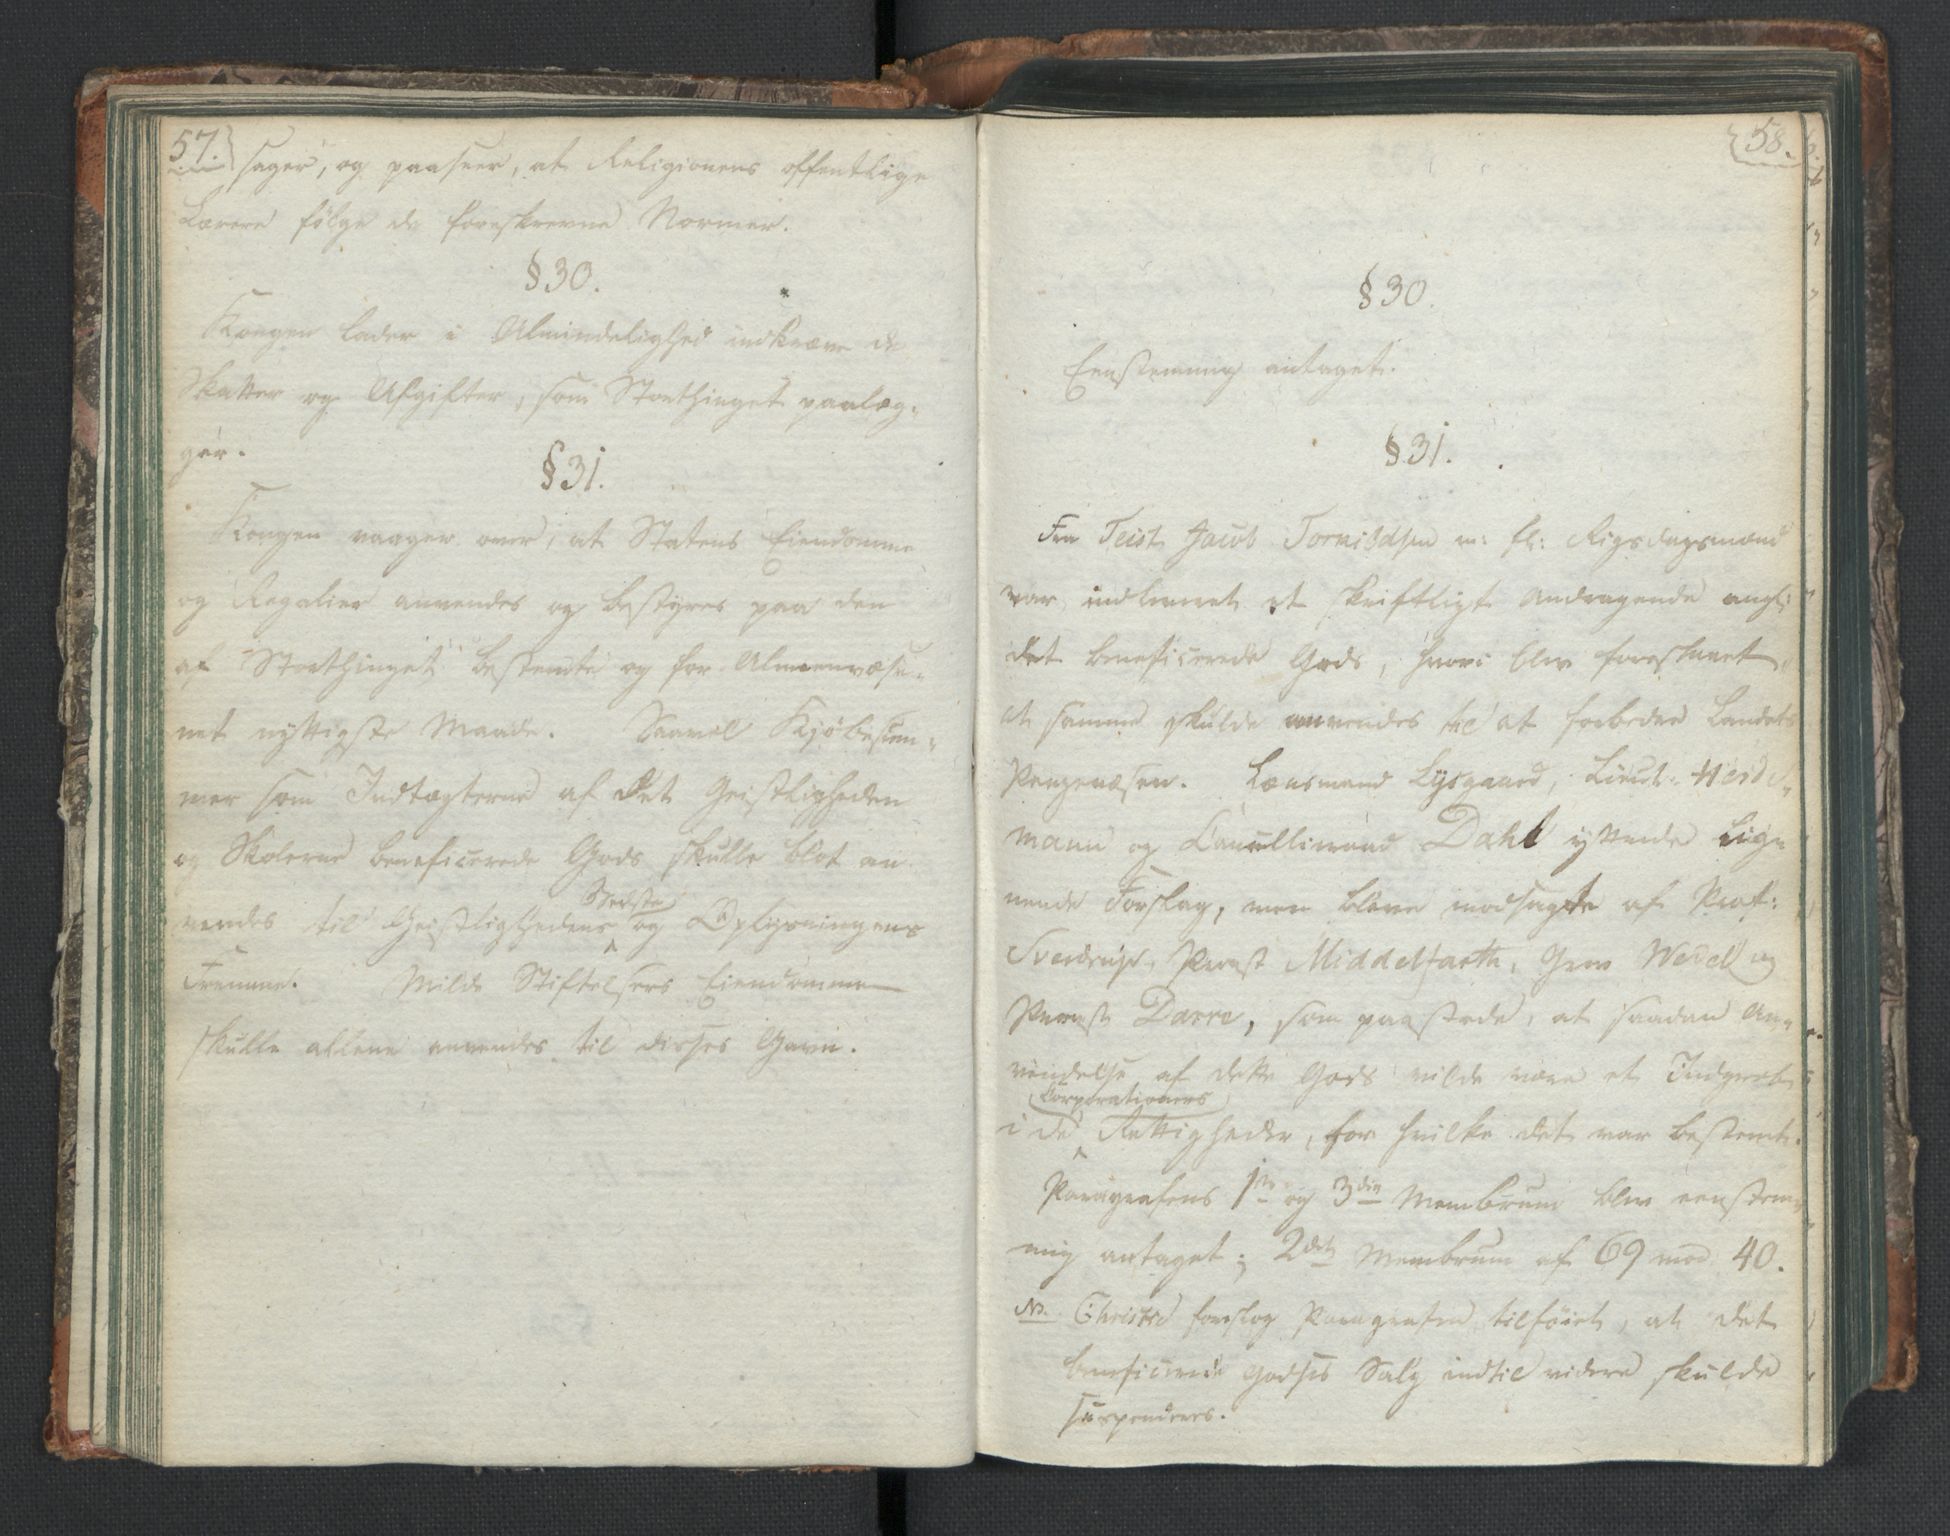 57.
sager, og paaseer, at Religionens offentlige
Lærere følge de foreskrevne Normer.
§ 30.
Kongen lader i Almindelighed indkræve de
Skatter og Afgifter, som Storthinget paalæg-
ger.
§ 31.
Kongen vaager over, at Statens Eiendomme
og Regalier anvendes og bestyres paa den
af Storthinget bestemte og for Almeenvæse-
net nyttigste Maade. Saavel Kjøbesum-
mer som Indtægterne af det Geistligheden
og Skolerne beneficerede Gods skulle blot an
vendes til Geistlighedens Bedste og Oplysningens
Fremme. Milde Stiftelsers Eiendomme
skulle allene anvendes til disses Gavn.
58.
§ 30.
Eenstemmig antaget.
§ 31.
Fra Teist, Jacob Tormodsen m: fl: Rigsdagsmænd
var indleveret et skriftligt Andragende angl:
det beneficerede Gods, hvori blev foreslaaet,
at samme skulde anvendes til at forbedre Landets
Pengevæsen. Lænsmand Lysgaard, Lieut: Heide-
mann og Cancelliraad Dahl yttrede lig-
nende Forslag, men bleve modsagte af Prof:
Sverdrup, Provst Middelfarth, Grev Wedel og
Provst Darre, som paastode, at saadan An-
vendelse af dette Gods vilde være et Indgreb
i de Corporationers Rettigheder, for hvilke det var bestemt.
Paragrafens 1te og 3die Membrum blev eenstem-
mig antaget; 2det Membrum af 69 mod 40.
NB. Christie foreslog Paragrafen tilføiet, at det
beneficerede Godses Salg indtil videre skulde
suspenderes.